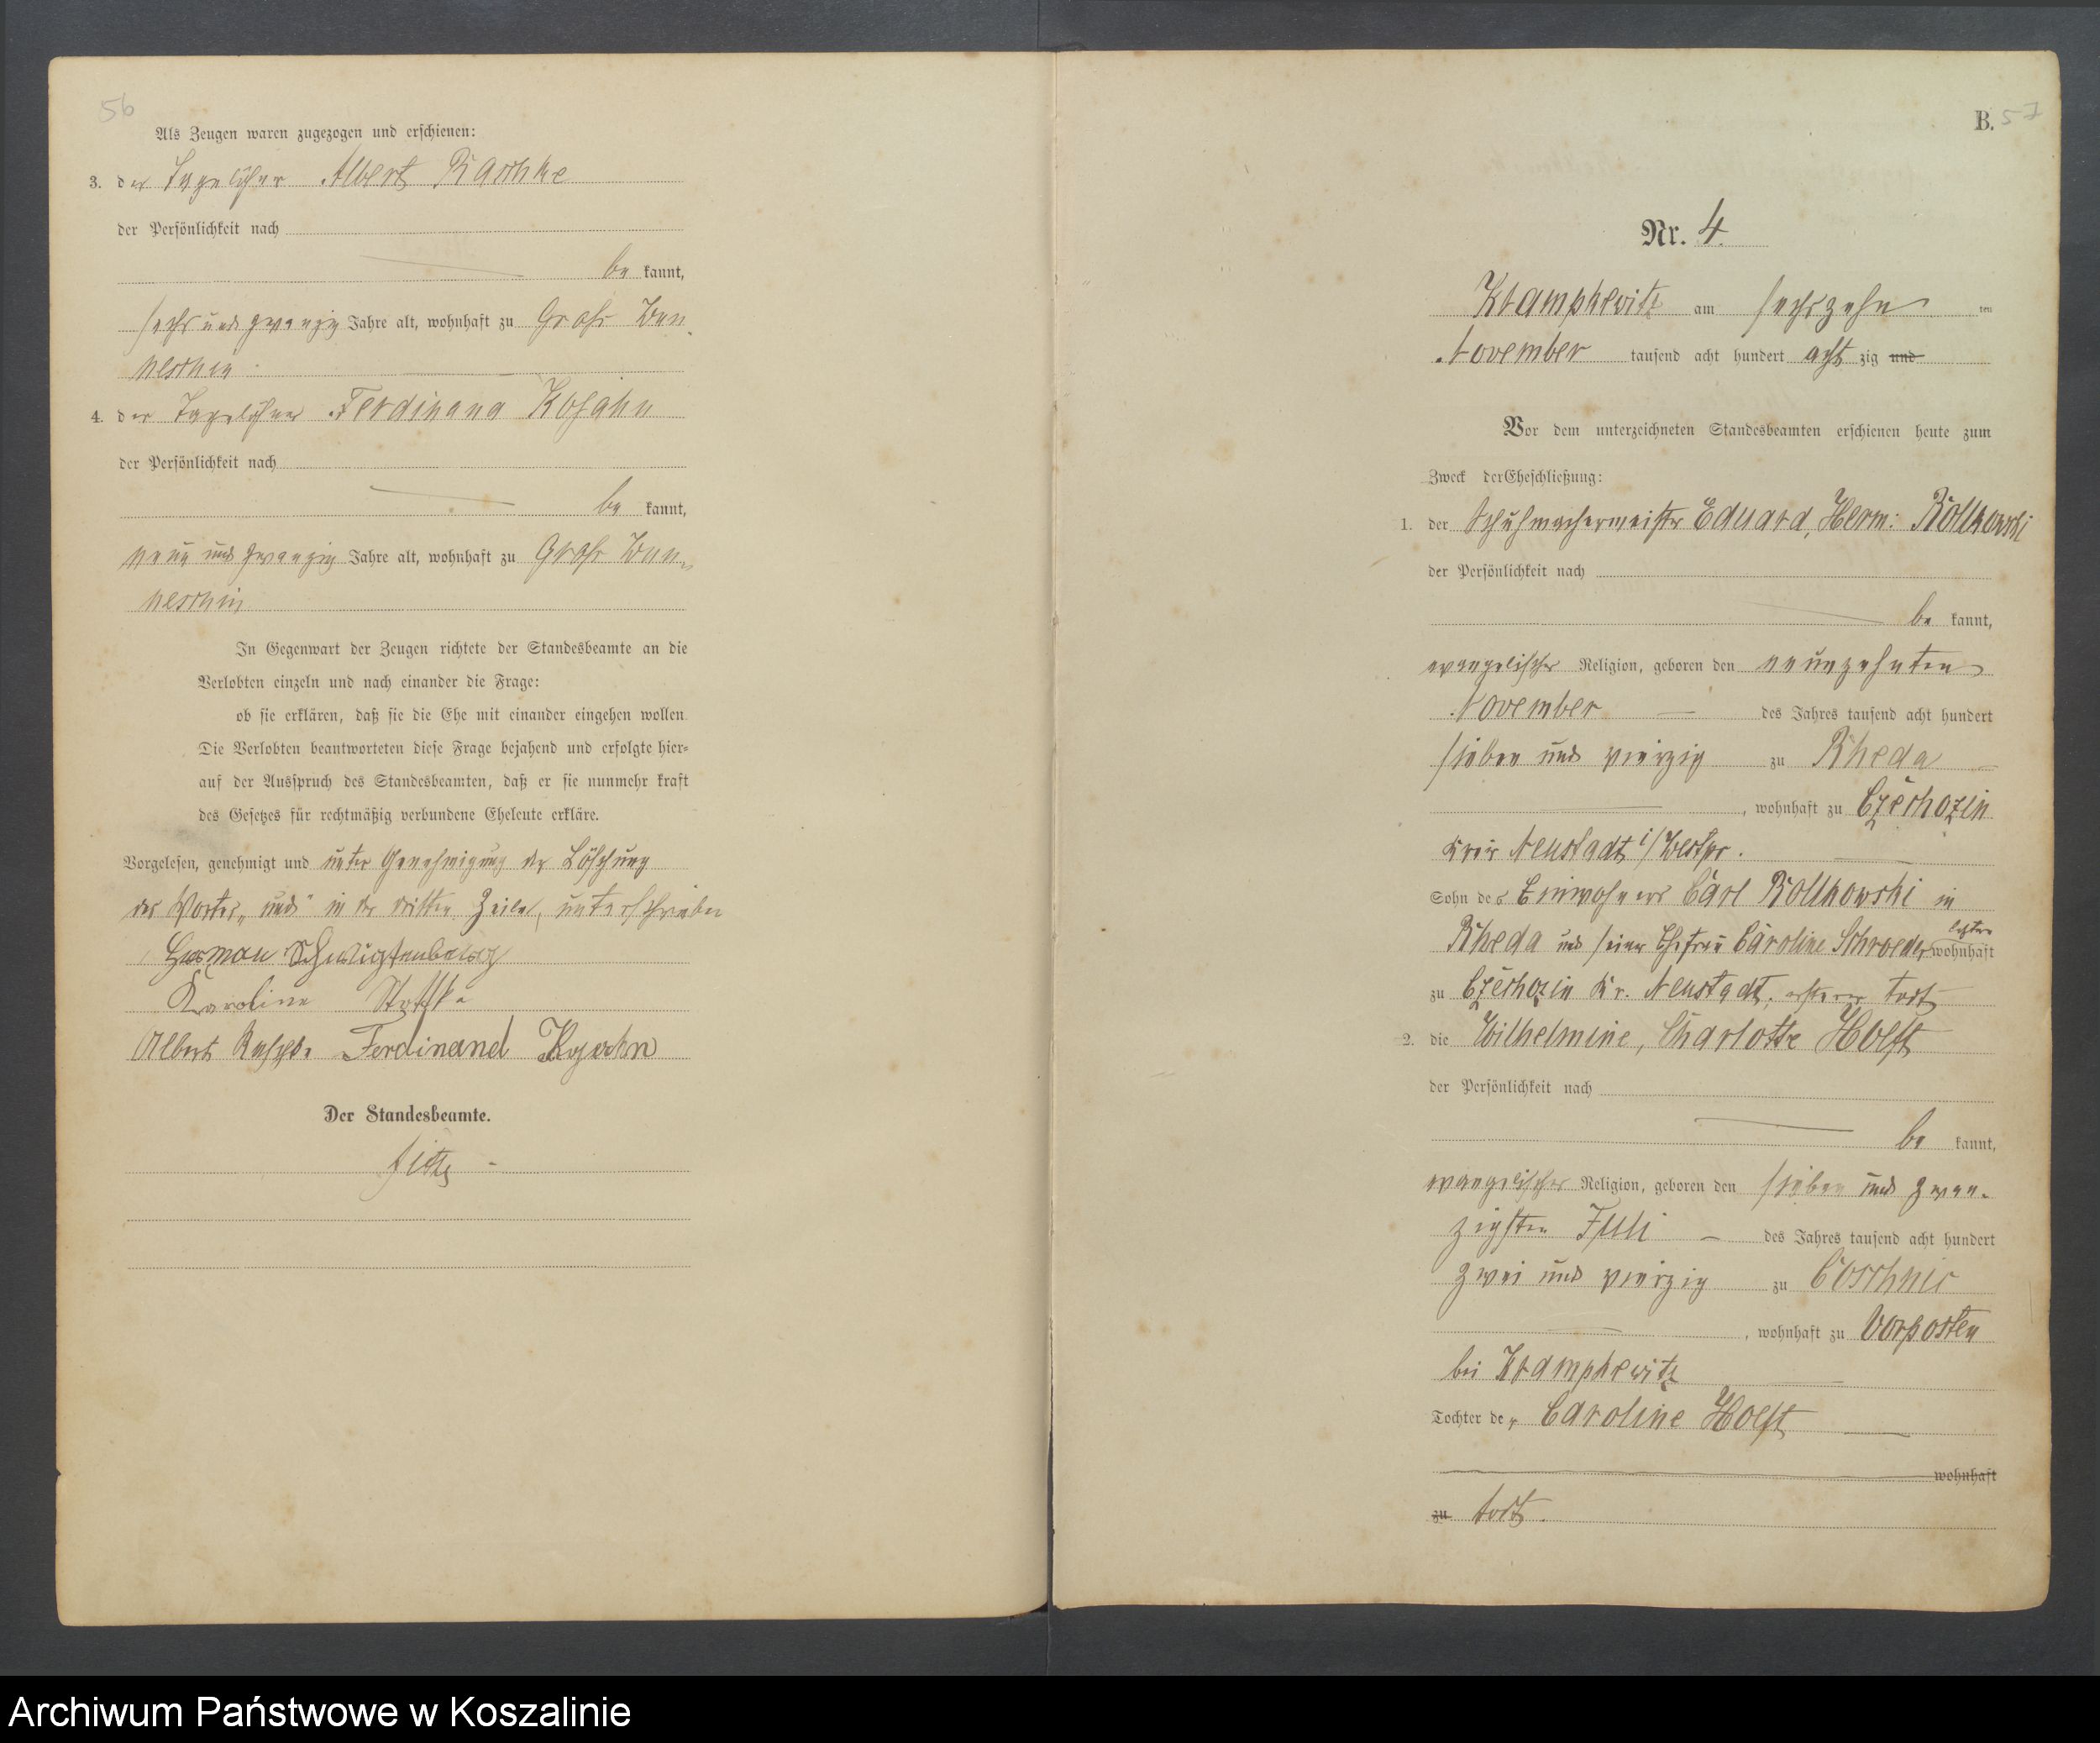 56
Als Zeugen waren zugezogen und erschienen:
3. der Tagelöhner Albert Raschke
der Persönlichkeit nach
be kannt,
sechs und zwanzig Jahre alt, wohnhaft zu Groß Wun
neschin
4. der Tagelöhner Ferdinand Kojahn
der Persönlichkeit nach
be kannt,
neun und zwanzig Jahre alt, wohnhaft zu Groß Wun-
neschin
In Gegenwart der Zeugen richtete der Standesbeamte an die
Verlobten einzeln und nach einander die Frage:
ob sie erklären, daß sie die Ehe mit einander eingehen wollen.
Die Verlobten beantworteten diese Frage bejahend und erfolgte hier=
auf der Ausspruch des Standesbeamten, daß er sie nunmehr kraft
des Gesetzes für rechtmäßig verbundene Eheleute erkläre.
Vorgelesen, genehmigt und unter Genehmigung der Löschung
des Wortes „und" in der dritten Zeile, unterschrieben
Herman
Karoline
Albert Raschke Ferdinand Kojahn
Der Standesbeamte.
B. 57
Nr. 4.
Krampkewitz am sechszehn ten
November tausend acht hundert acht zig und
Vor dem unterzeichneten Standesbeamten erschienen heute zum
Zweck der Eheschließung:
1. der Schuhmachermeister Eduard, Herm: Rollkowski
der Persönlichkeit nach
be kannt,
evangelischer Religion, geboren den neunzehnten
November des Jahres tausend acht hundert
sieben und vierzig zu Rheda
, wohnhaft zu Czechozin
Kreis Neustadt i/Westpr.
Sohn des Einwohners Carl Rollkowski in
Rheda und seiner Ehefrau Caroline Schroeder, letztere wohnhaft
zu Czechozin Kr. Neustadt, ersterer todt
2. die Wilhelmine, Charlotte Hoeft
der Persönlichkeit nach
be kannt,
evangelischer Religion, geboren den sieben und zwan-
zigsten Juli des Jahres tausend acht hundert
zwei und vierzig zu Coschnic
, wohnhaft zu Vorposten
bei Krampkewitz
Tochter der Caroline Hoeft
wohnhaft
zu todt.
Archiwum Państwowe w Koszalinie